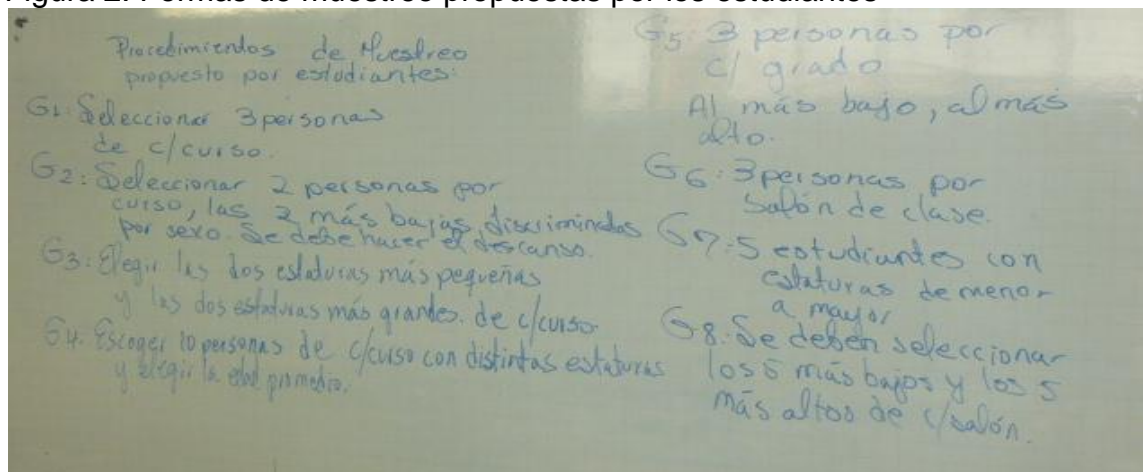 Figura 2. Formas de muestreo propuestas por los estudiantes
Procedimientos de Muestreo
propuesto por estudiantes:
G1: Seleccionar 3 personas
de c/curso.
G2: Seleccionar 2 personas por
curso, las 2 más bajas, discriminados
por sexo. Se debe hacer el descanso.
G3: Elegir las dos estaturas más pequeñas
y las dos estaturas más grandes. de c/curso.
G4. Escoger 10 personas de c/curso con distintas estaturas
y elegir la edad promedio.
G5: 3 personas por
c/ grado
Al más bajo, al más
alto.
G6: 3 personas por
salón de clase.
G7: 5 estudiantes con
estaturas de menor
a mayor
G8: Se deben seleccionar
los 5 más bajos y los 5
más altos de c/salón.